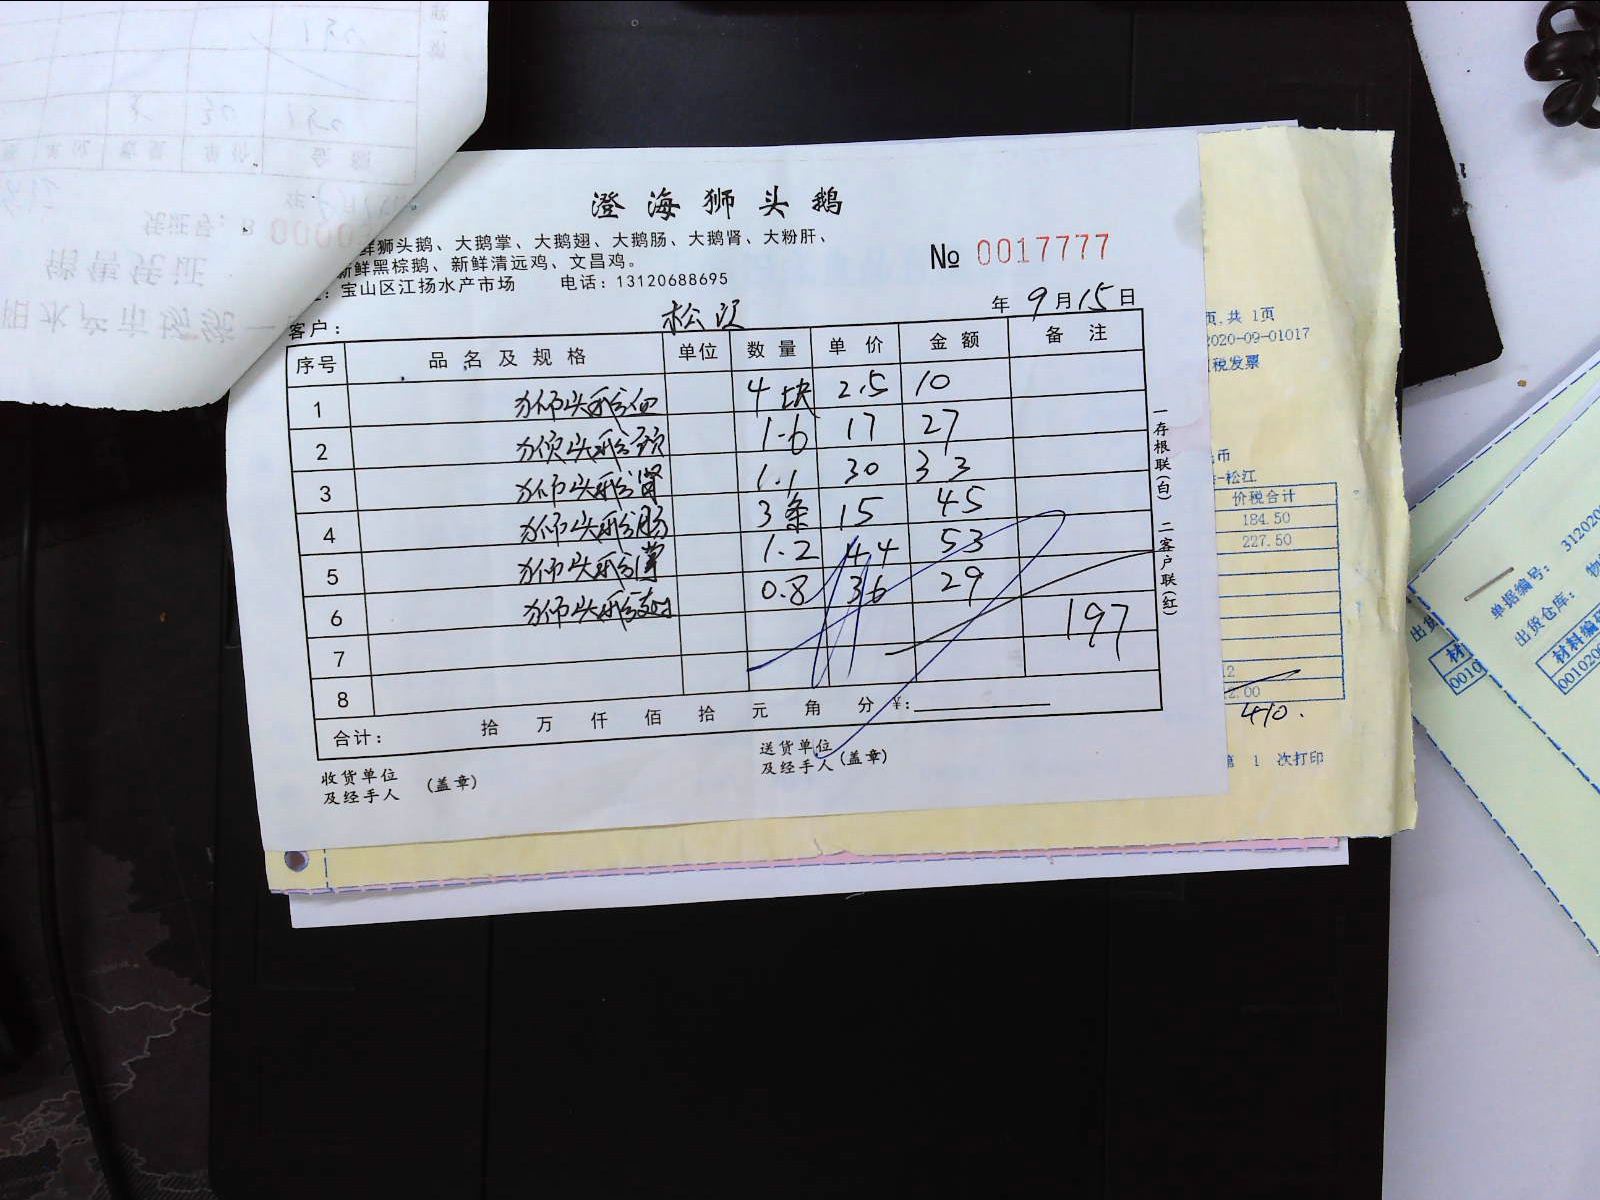 澄海狮头鹅
鲜狮头鹅、大鹅掌、大鹅翅、大鹅肠、大鹅肾、大粉肝、
新鲜黑棕鹅、新鲜清远鸡、文昌鸡。
：宝山区江扬水产市场 电话：13120688695
№ 0017777
客户： 松江 年 9月15日
序号 品名及规格 单位 数量 单价 金额 备注
1 狮头鹅血 4块 2.5 10
2 狮头鹅颈 1.6 17 27
3 狮头鹅肾 1.1 30 33
4 狮头鹅肠 3条 15 45
5 狮头鹅掌 1.2 44 53
6 狮头鹅翅 0.8 36 29
7 197
8
合计： 拾 万 仟 佰 拾 元 角 分 ¥：
收货单位
及经手人 (盖章)
送货单位
及经手人 (盖章)
一存根联(白) 二客户联(红)
页,共 1页
2020-09-01017
税发票
币
-松江
价税合计
184.50
227.50
12
2.00
410.
第 1 次打印
单据编号： 312020
出货仓库： 物
材料编码
001020
出货
材
0010
销售凭证
凭证号：